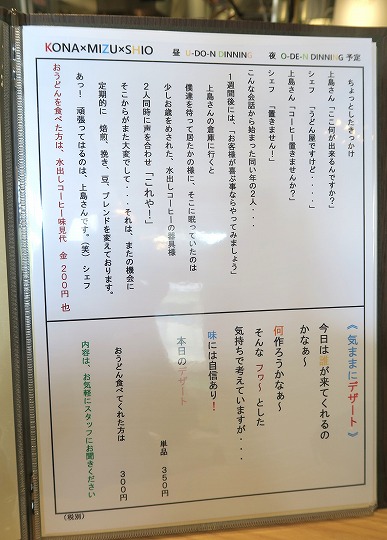 KONA×MIZU×SHIO　昼 U-DO-N DINNING　夜 O-DE-N DINNING 予定
ちょっとしたきっかけ
上島さん「ここ何が出来るんですか?」
シェフ　「うどん屋ですけど・・・・」
上島さん「コーヒー置きませんか?」
シェフ　「置きません!」
こんな会話から始まった同い年の2人・・・
1週間後には、「お客様が喜ぶ事ならやってみましょう」
上島さんの倉庫に行くと
僕達を待って居たかの様に、そこに眠っていたのは
少しお歳をめされた、水出しコーヒーの器具様
2人同時に声を合わせ「これや!」
そこからがまた大変でして・・・それは、またの機会に
定期的に　焙煎、挽き、豆、ブレンドを変えております。
あっ!　頑張ってはるのは、上島さんです。(笑)　シェフ
おうどんを食べた方は、水出しコーヒー味見代　金　200円　也
《 気ままにデザート 》
今日は誰が来てくれるの
かなぁ〜
何作ろうかなぁ〜
そんな　フワ〜　とした
気持ちで考えていますが・・・
味には自信あり!
本日のデザート
単品　350円
おうどん食べてくれた方は　300円
内容は、お気軽にスタッフにお聞きください
(税別)